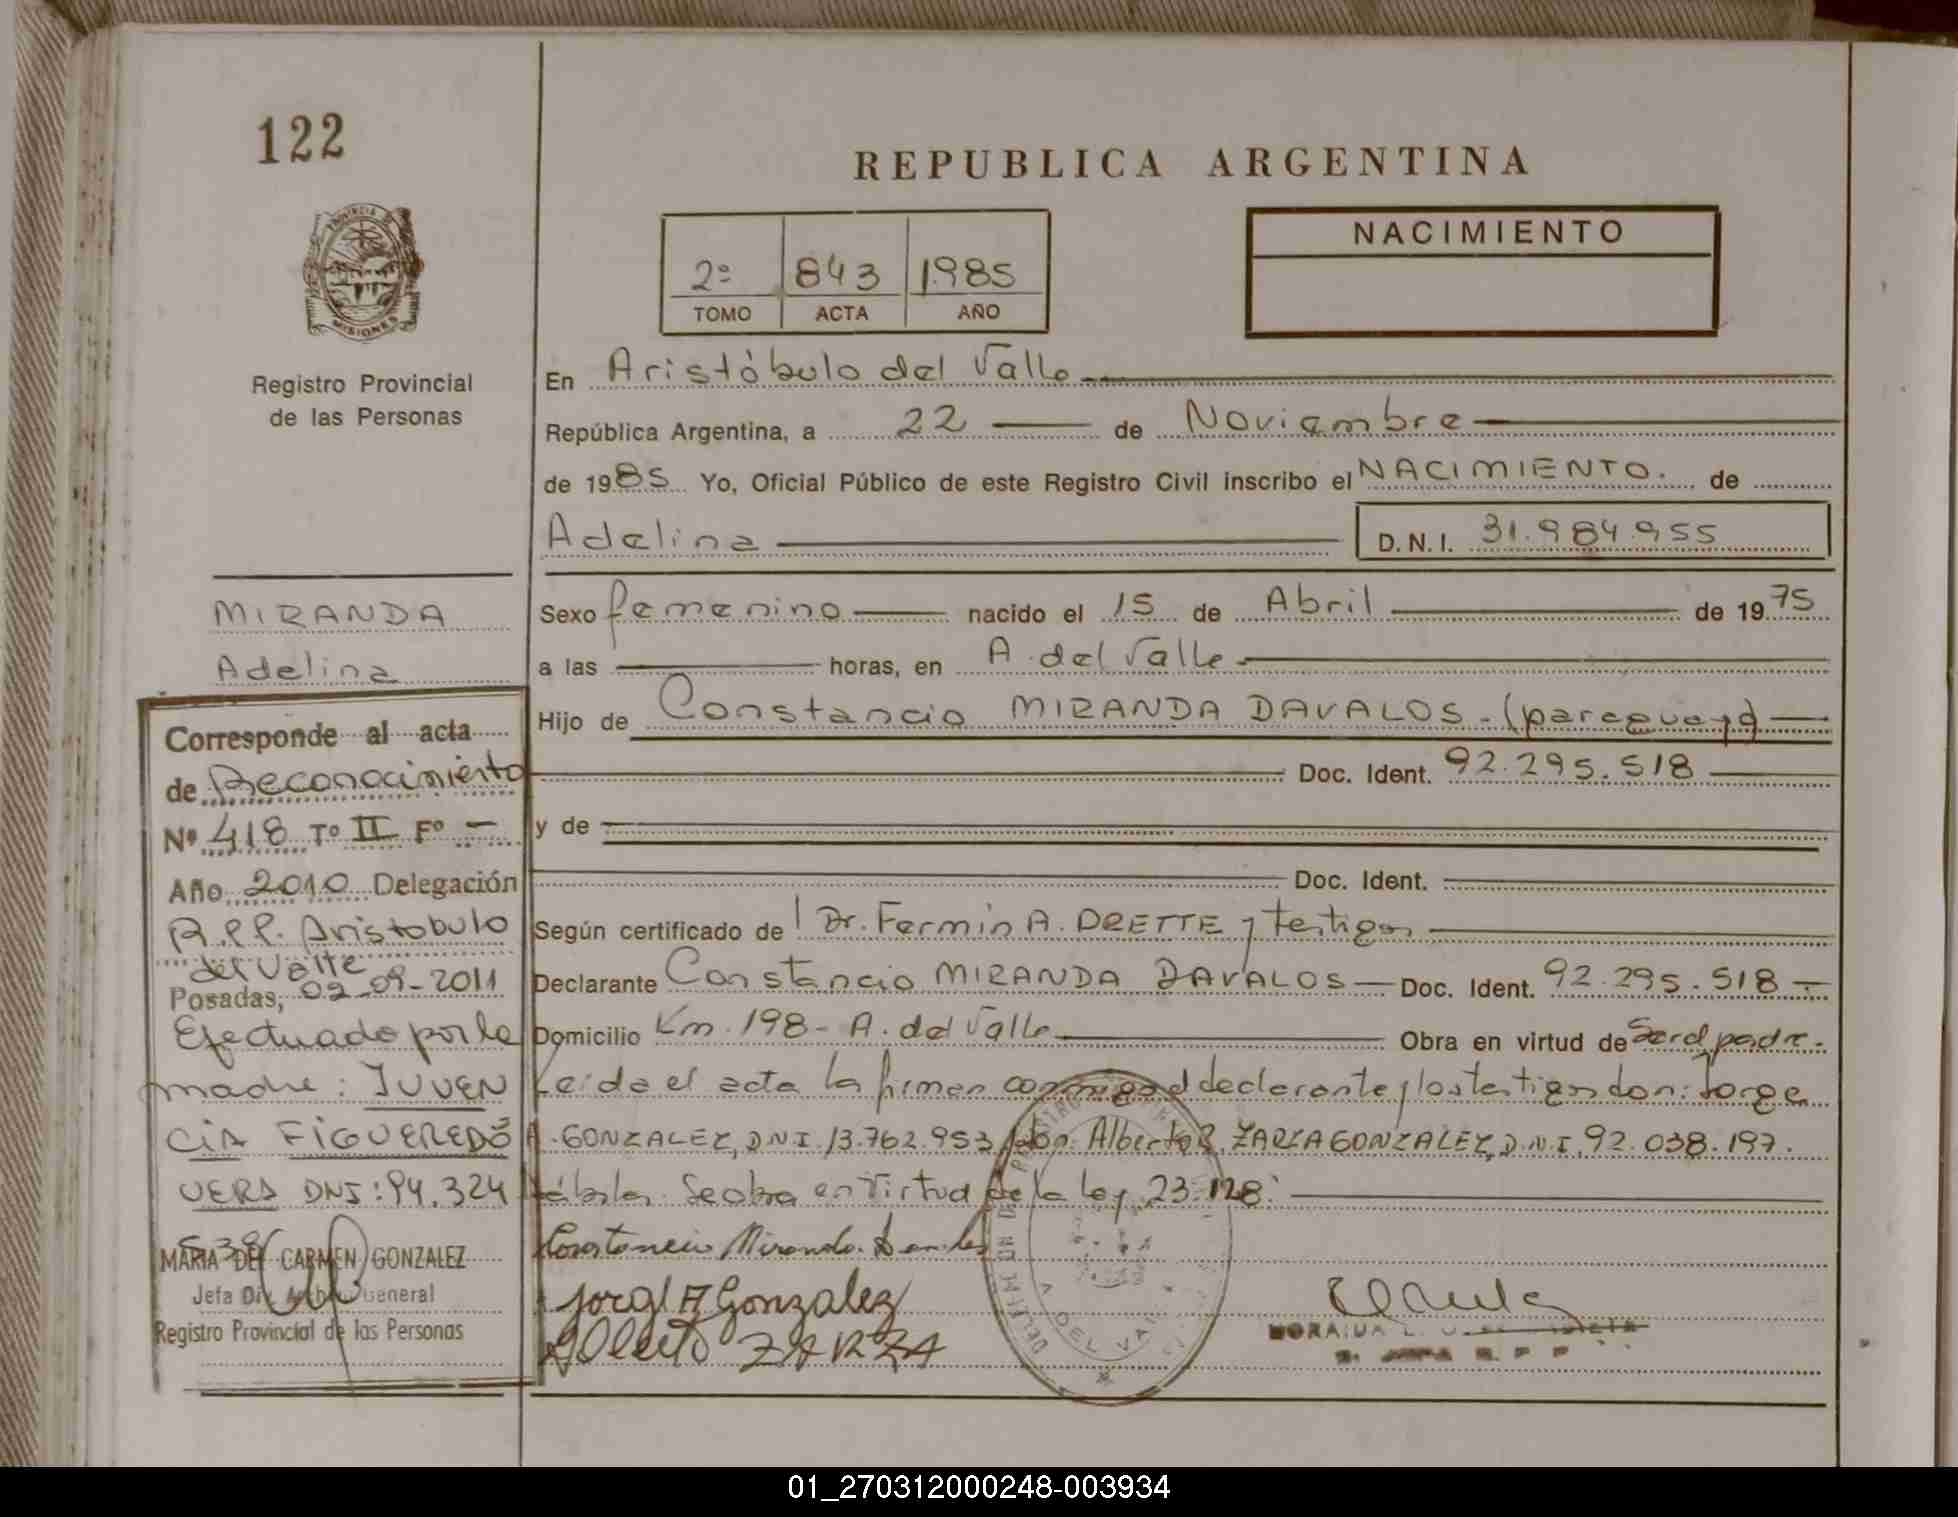 122
REPUBLICA ARGENTINA
PROVINCIA DE
MISIONES
Registro Provincial
de las Personas
2º 843 1985
TOMO ACTA AÑO
NACIMIENTO
En Aristóbulo del Valle
República Argentina, a 22 de Noviembre
de 1985 Yo, Oficial Público de este Registro Civil inscribo el NACIMIENTO. de
Adelina D.N.I. 31.984.955
MIRANDA
Adelina
Sexo femenino nacido el 15 de Abril de 1975
a las horas, en A. del Valle
Hijo de Constancio MIRANDA DAVALOS - (paraguayo)
Doc. Ident. 92.295.518
y de
Doc. Ident.
Según certificado de Dr. Fermin A. DRETTE y testigos
Declarante Constancio MIRANDA DAVALOS Doc. Ident. 92.295.518
Domicilio Km. 198 - A. del Valle Obra en virtud de Ser el padre.
Leida el acta la firman conmigo el declarante y los testigos don: Jorge
A. GONZALEZ, D.N.I. 13.762.953 y don: Alberto R. ZARZA GONZALEZ, D.N.I. 92.038.197.
hábiles. Se obra en virtud de la Ley 23.128.
Constancio Miranda Davalos
Jorge A Gonzalez
Alberto ZARZA
A. DEL VALLE
Corresponde al acta
de Reconocimiento
Nº 418 Tº II Fº -
Año 2010 Delegación
R.P.P. Aristobulo
del Valle
Posadas, 02-09-2011
Efectuado por la
madre: JUVEN
CIA FIGUEREDO
VERA DNI: 94.324
MARIA DEL CARMEN GONZALEZ
Jefa Div. Archivo General
Registro Provincial de las Personas
01_270312000248-003934